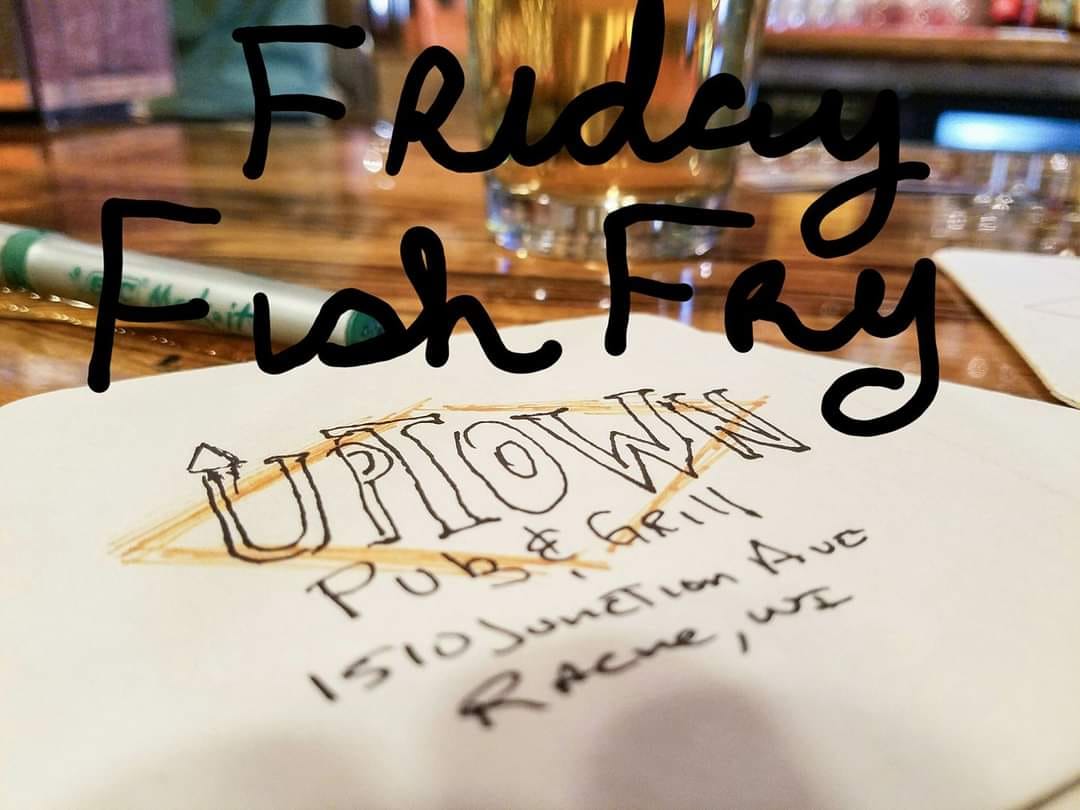 Friday
Fish Fry
UPTOWN
Pub & Grill
1510 Junction Ave
Racine, WI